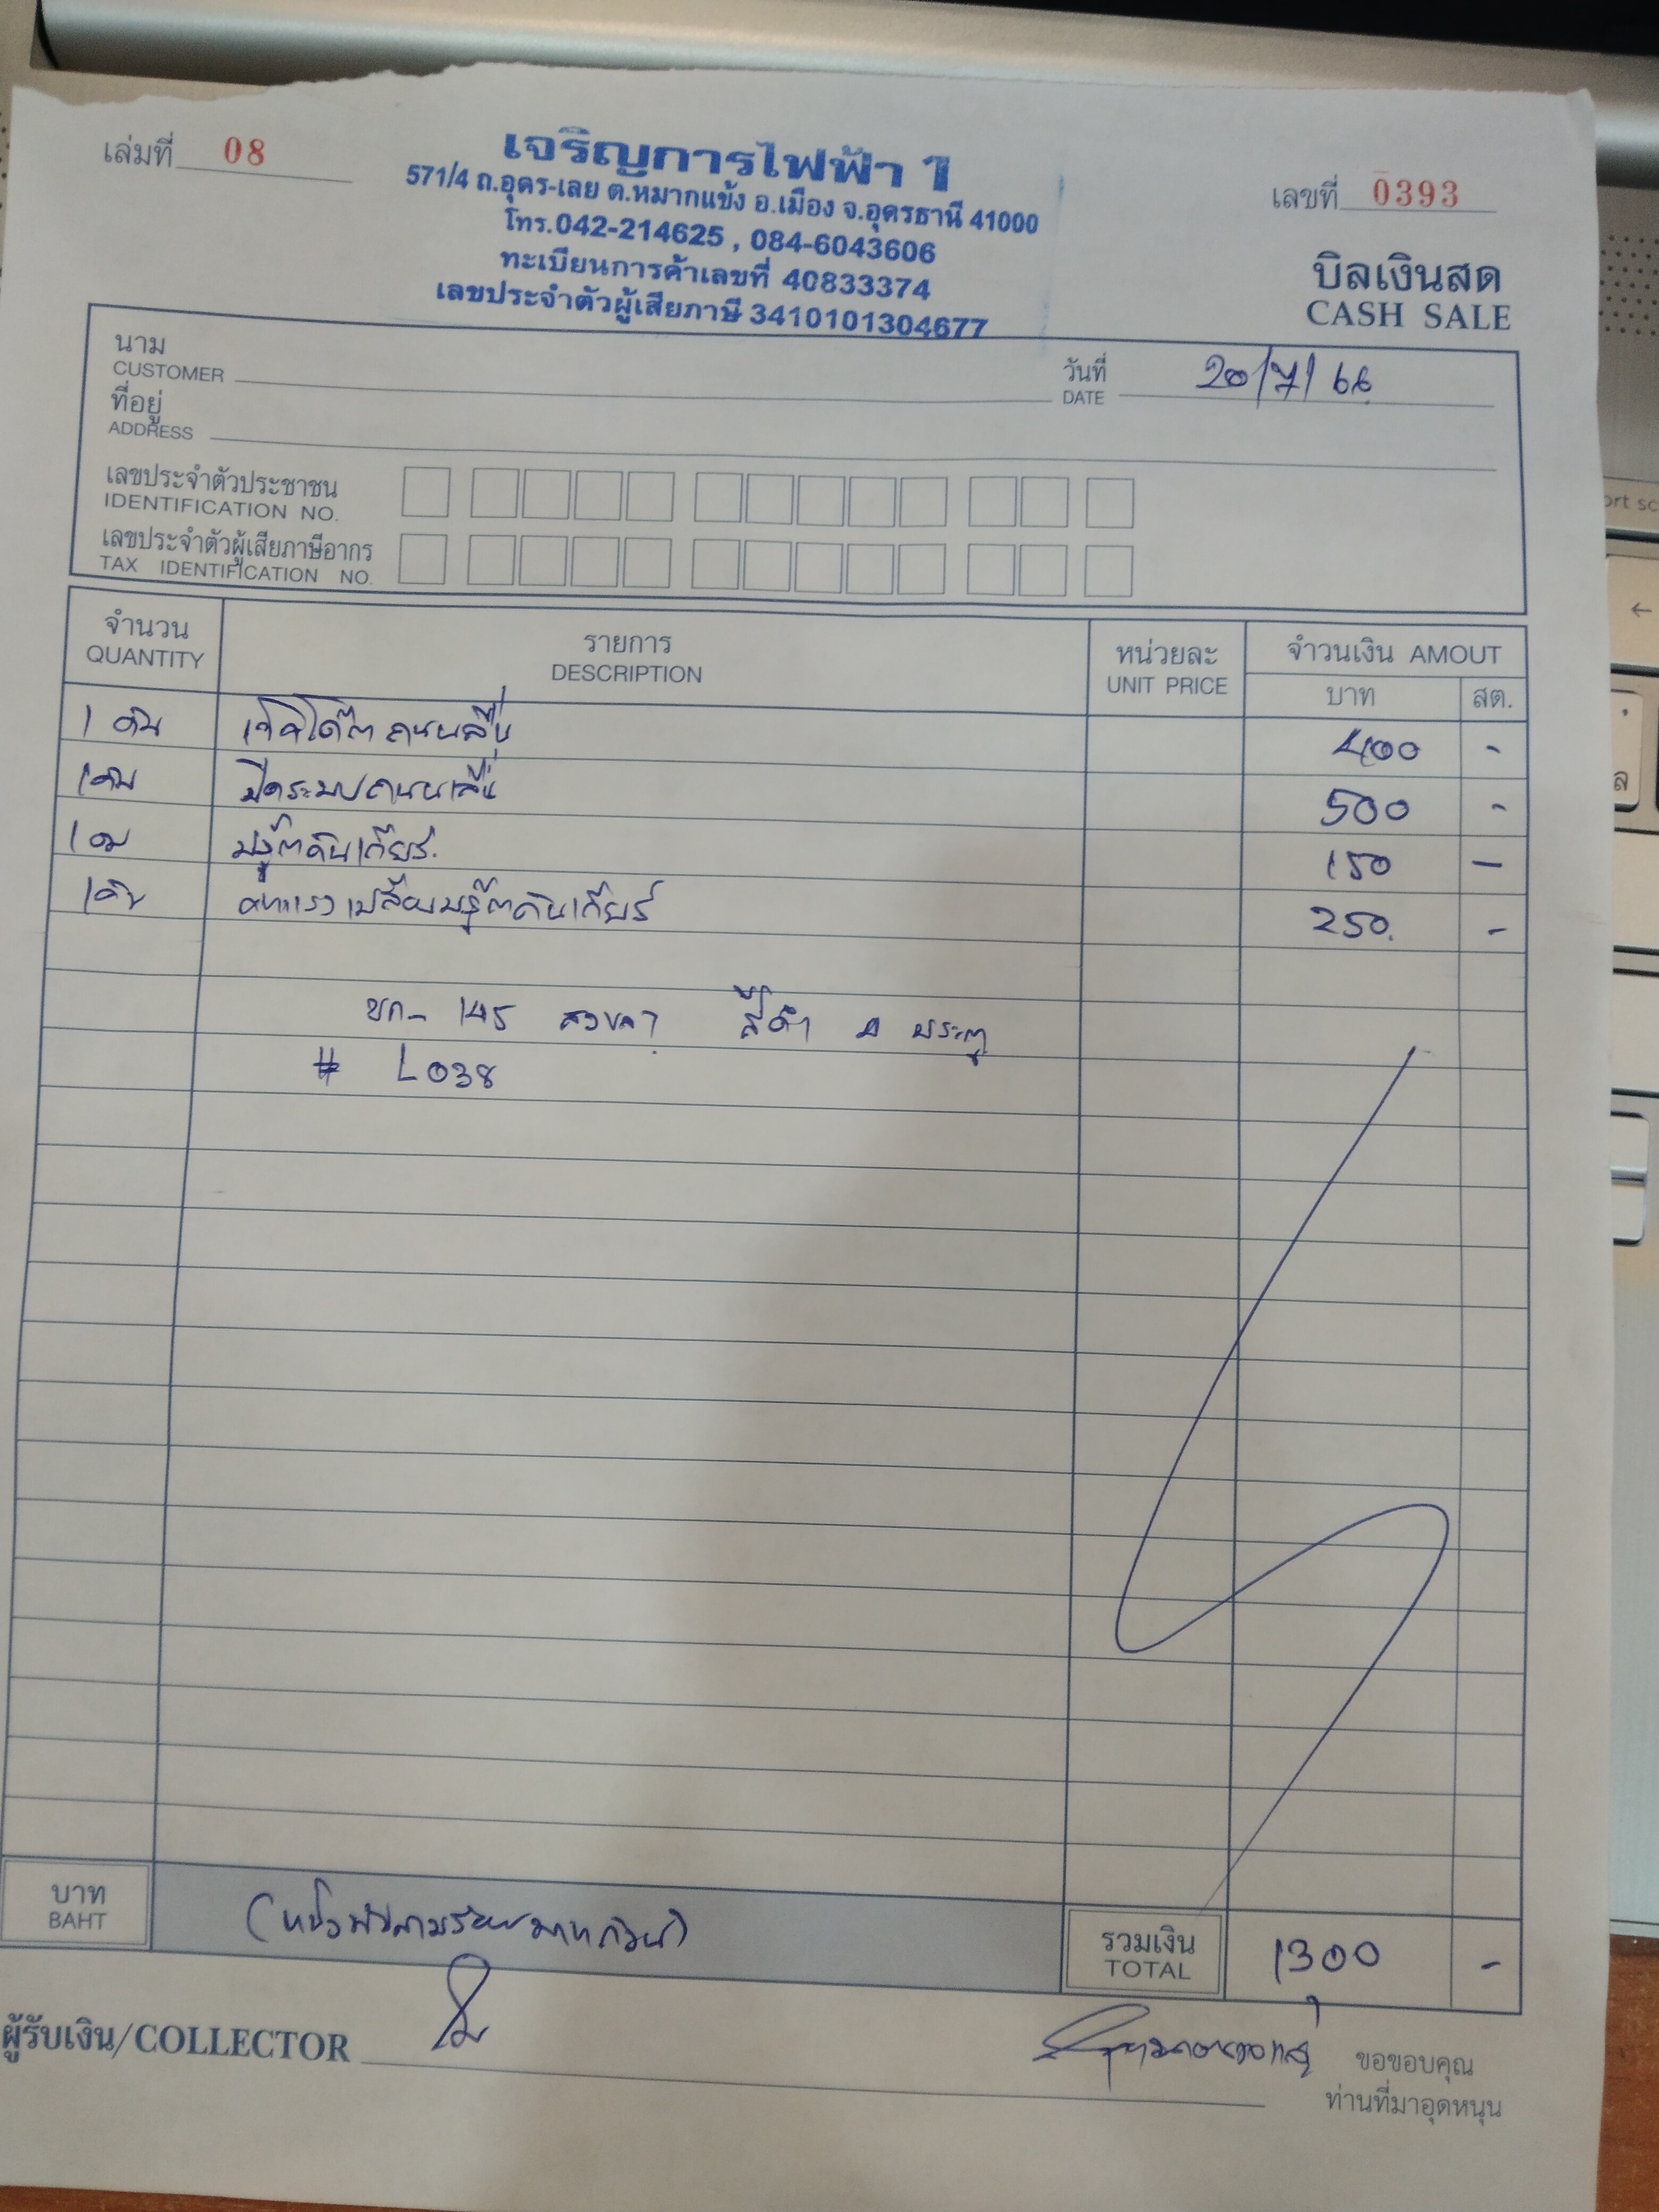 เล่มที่ 08
เจริญการไฟฟ้า 1
571/4 ถ.อุดร-เลย ต.หมากแข้ง อ.เมือง จ.อุดรธานี 41000
โทร.042-214625 , 084-6043606
ทะเบียนการค้าเลขที่ 40833374
เลขประจำตัวผู้เสียภาษี 3410101304677
เลขที่ 0393
บิลเงินสด
CASH SALE
นาม
CUSTOMER
วันที่ 20/7/66
DATE
ที่อยู่
ADDRESS
เลขประจำตัวประชาชน
IDENTIFICATION NO.
เลขประจำตัวผู้เสียภาษีอากร
TAX IDENTIFICATION NO.
จำนวน รายการ หน่วยละ จำวนเงิน AMOUT
QUANTITY DESCRIPTION UNIT PRICE บาท สต.
1 คัน 400 -
1คัน 500 -
1 คัน บู๊ตคันเกียร์ 150 -
1คัน ค่าแรงเปลี่ยนบู๊ตคันเกียร์ 250. -
145 สงขลา สีดำ 4 ประตู
# L038
บาท
BAHT
(หนึ่งพันสามร้อยบาทถ้วน)
รวมเงิน 1300 -
TOTAL
ผู้รับเงิน/COLLECTOR
ขอขอบคุณ
ท่านที่มาอุดหนุน
ort sc
←
ล